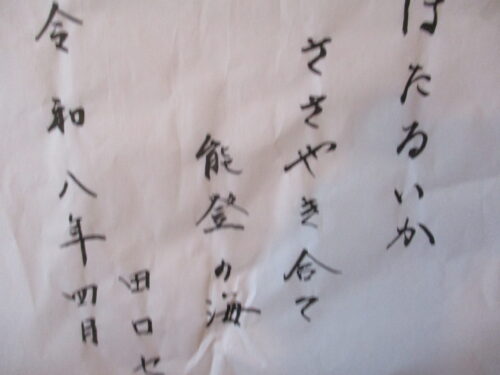 ほたるいか
ささやき合て
能登の海
田口せ
令和八年四月